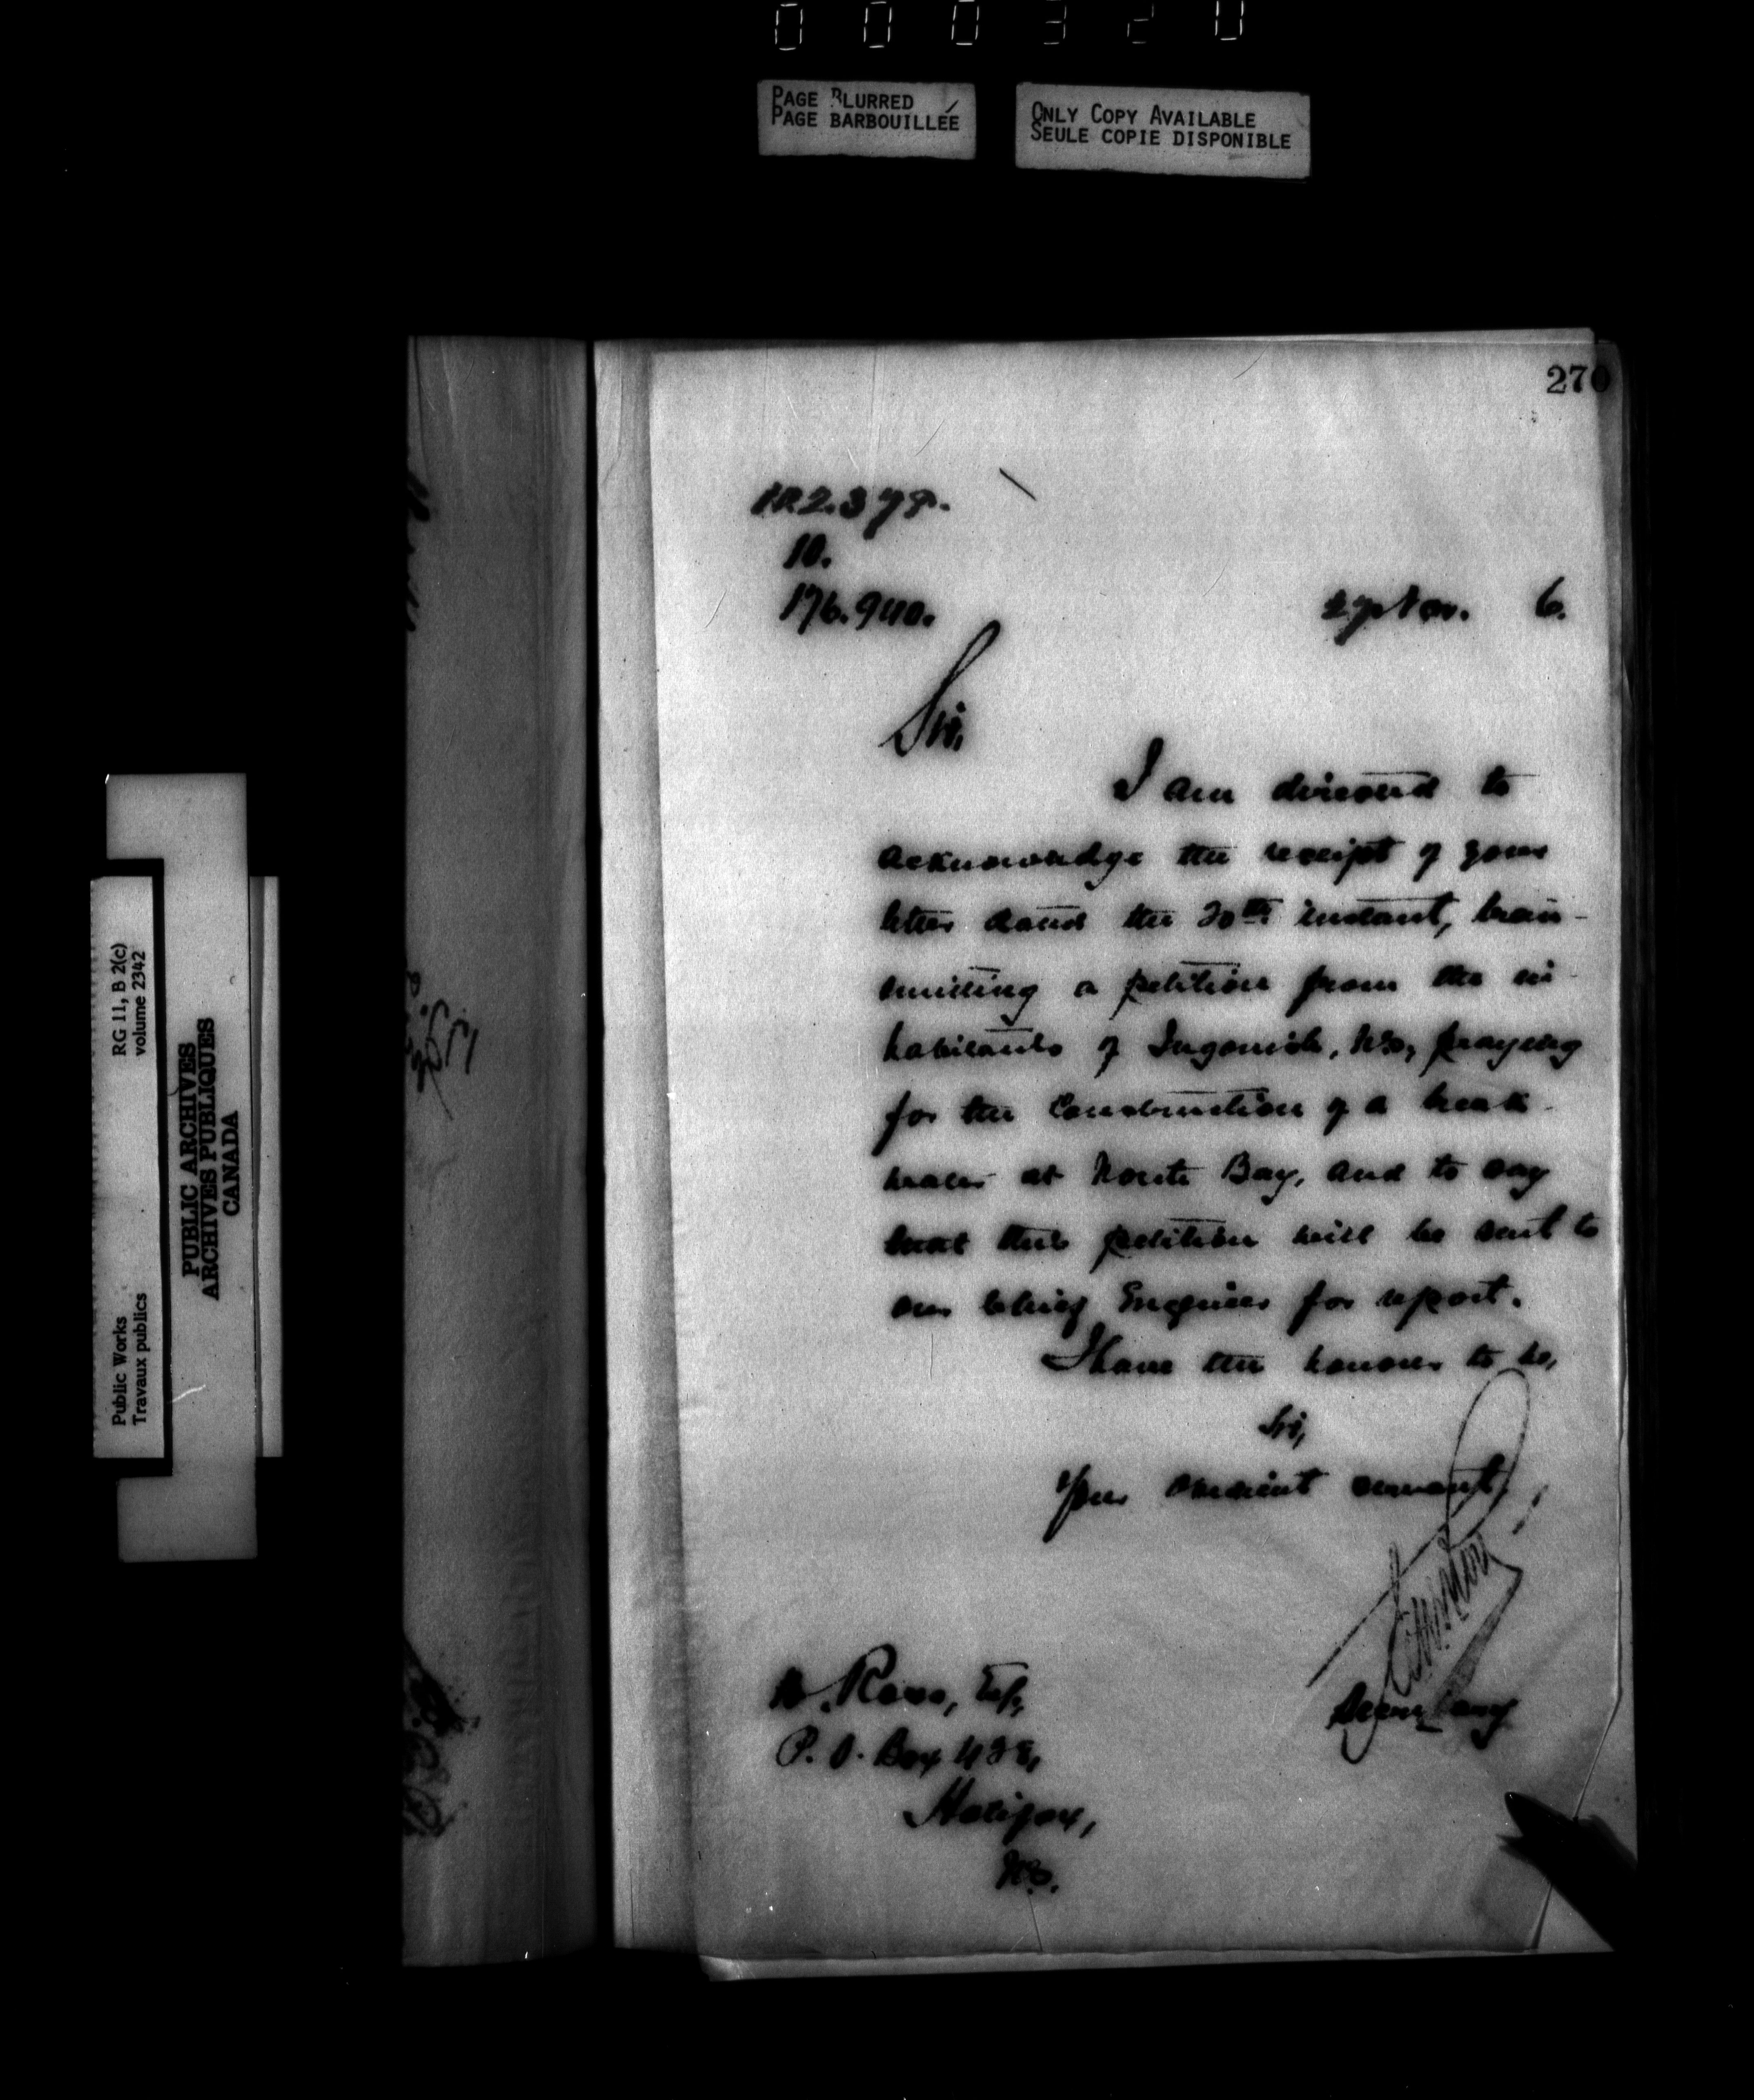 000320
PAGE BLURRED
PAGE BARBOUILLÉE
ONLY COPY AVAILABLE
SEULE COPIE DISPONIBLE
270
10.
176.940.
27 Nov. 6.
Sir,
I am directed to
acknowledge the receipt of your
letter dated the 20th instant, trans-
mitting a petition from the in-
habitants of Ingonish, N.S., praying
for the construction of a break-
water at North Bay, and to say
that this petition will be sent to
our Chief Engineer for report.
I have the honour to be,
Sir,
Your obedient servant,
Secretary
Ross, Esq,
P. O. Box
Halifax,
N.S.
Public Works
Travaux publics
RG 11, B 2(c)
volume 2342
PUBLIC ARCHIVES
ARCHIVES PUBLIQUES
CANADA